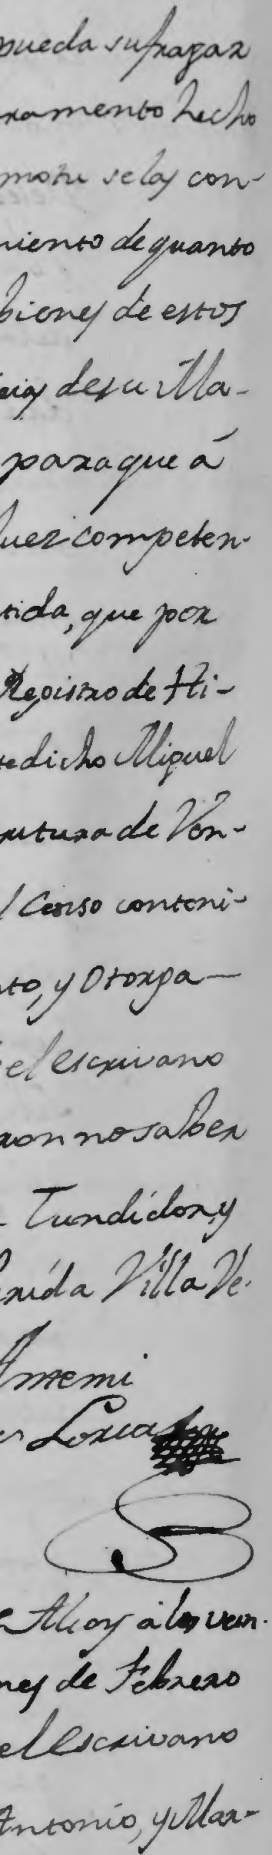 pueda sufragar
ramento hecho
motu se las con-
miento de quanto
bienes de estos
cias de su Ma-
para que á
Juez competen-
tida, que por
Registro de Hi-
tedicho Miguel
critura de Ven-
l Censo conteni-
nto, y Otorga-
el escrivano
ron no saber
Tundidor, y
ferida Villa Ve-
Antemi
Lorca
Alcoy á los vein-
nes de Febrero
el Escrivano
Antonio, y Mar-